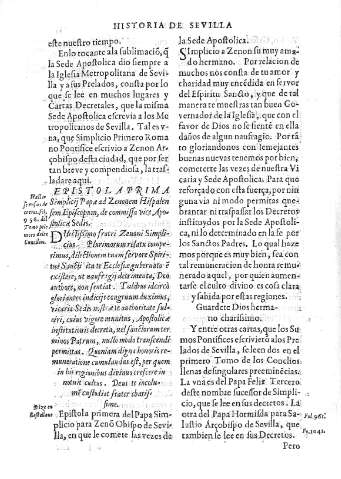 HISTORIA DE SEVILLA
este nuestro tiempo.
En lo tocante ala sublimació, q̃
la Sede Apostolica dio siempre a
la Iglesia Metropolitana de Sevi-
lla y a sus Pelados, consta por lo
que se lee en muchos lugares y
Cartas Decretales, que la misma
Sede Apostolica escrivia a los Me
tropolicanos de Sevilla. Tal es v-
na, que Simplicio Primero Roma
no Pontifice escrivio a Zenon Ar-
çobispo desta ciudad, que por ser
tan breve y compendiosa, la tras-
ladare aqui.
EPISTOLA PRIMA
Simplicij Papa ad Zenonem Hispalen
sem Episcopum, de commissa vice Apo-
stolica Sedis.
Dilectissimo fratri Zenoni Simpli-
cius. Plurimorum relatu compe-
rimus, dilectionem tuam fervore Spiri-
tus Sancti ita te Ecclesiæ gubernatorẽ
existere, ut naufragij detrimenta, Deo
authore, non sentiat. Talibus idcirco
gloriantes indicijs congruum duximus,
vicaria Sedis nostræ te authoritate ful-
ciri, cuius vigore munitus, Apostolicæ
institutionis decreta, vel sanctorum ter
minos Patrum, nullo modo transcendi
permittas. Quoniam digna honoris re-
muneratione cumulandus est, per quem
in his regionibus divinus crescere in-
notuit cultus. Deus te incolu-
mem custodiat frater charis-
sime.
Epistola primera del Papa Sim
plicio para Zenõ Obispo de Sevi
lla, en que le comete las vezes de
Hallase
956.
Dize en
Castellano
la Sede Apostolica.
Simplicio a Zenon su muy ama-
do hermano. Por relacion de
muchos nos consta de tu amor y
charidad muy encẽdida en fervor
del Espiritu Sancto, y que de tal
manera te muestras tan buen Go-
vernador de la Iglesia, que con el
favor de Dios no se siente en ella
daños de algun naufragio. Por tã
to gloriandonos con lemejantes
buenas nuevas tenemos por bien,
cometerte las vezes de nuestra Vi
caria y Sede Apostolica. Para que
reforçado con esta fuerça, por nin
guna via ni modo permitas que-
brantar ni traspassar los Decretos
instituydos por la Sede Apostoli-
ca, ni lo determinado en la se por
los Sanctos Padres. Lo qual haze
mos porque es muy bien, sea con
tal remuneracion de honra remu-
nerado aquel, por quien aumen-
tarse el culto divino es cosa clara
y sabida por estas regiones.
Guardete Dios herma
no charissimo.
Y entre otras cartas, que los Su-
mos Pontifices escrivierõ a los Pre
lados de Sevilla, se leen dos en el
primero Tomo de los Concilios
llenas de singulares preeminẽcias.
La vna es del Papa Felix Tercero
deste nombre sucessor de Simpli-
cio, que se lee en sus decretos. La
otra del Papa Hormisda para Sa-
lustio Arçobispo de Sevilla, que
tambien se lee en sus Decretos.
Fol. 961.
Fo. 1042.
Pero